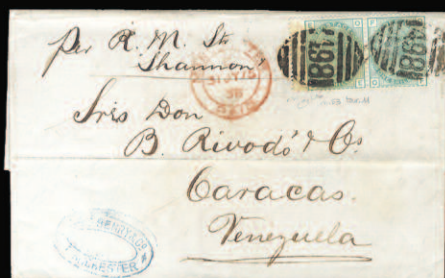 per R. M. Str
Shannon
Sres Don
B. Rivodó & Co
Caracas.
Venezuela
498
498
PAID
HENRY & Co